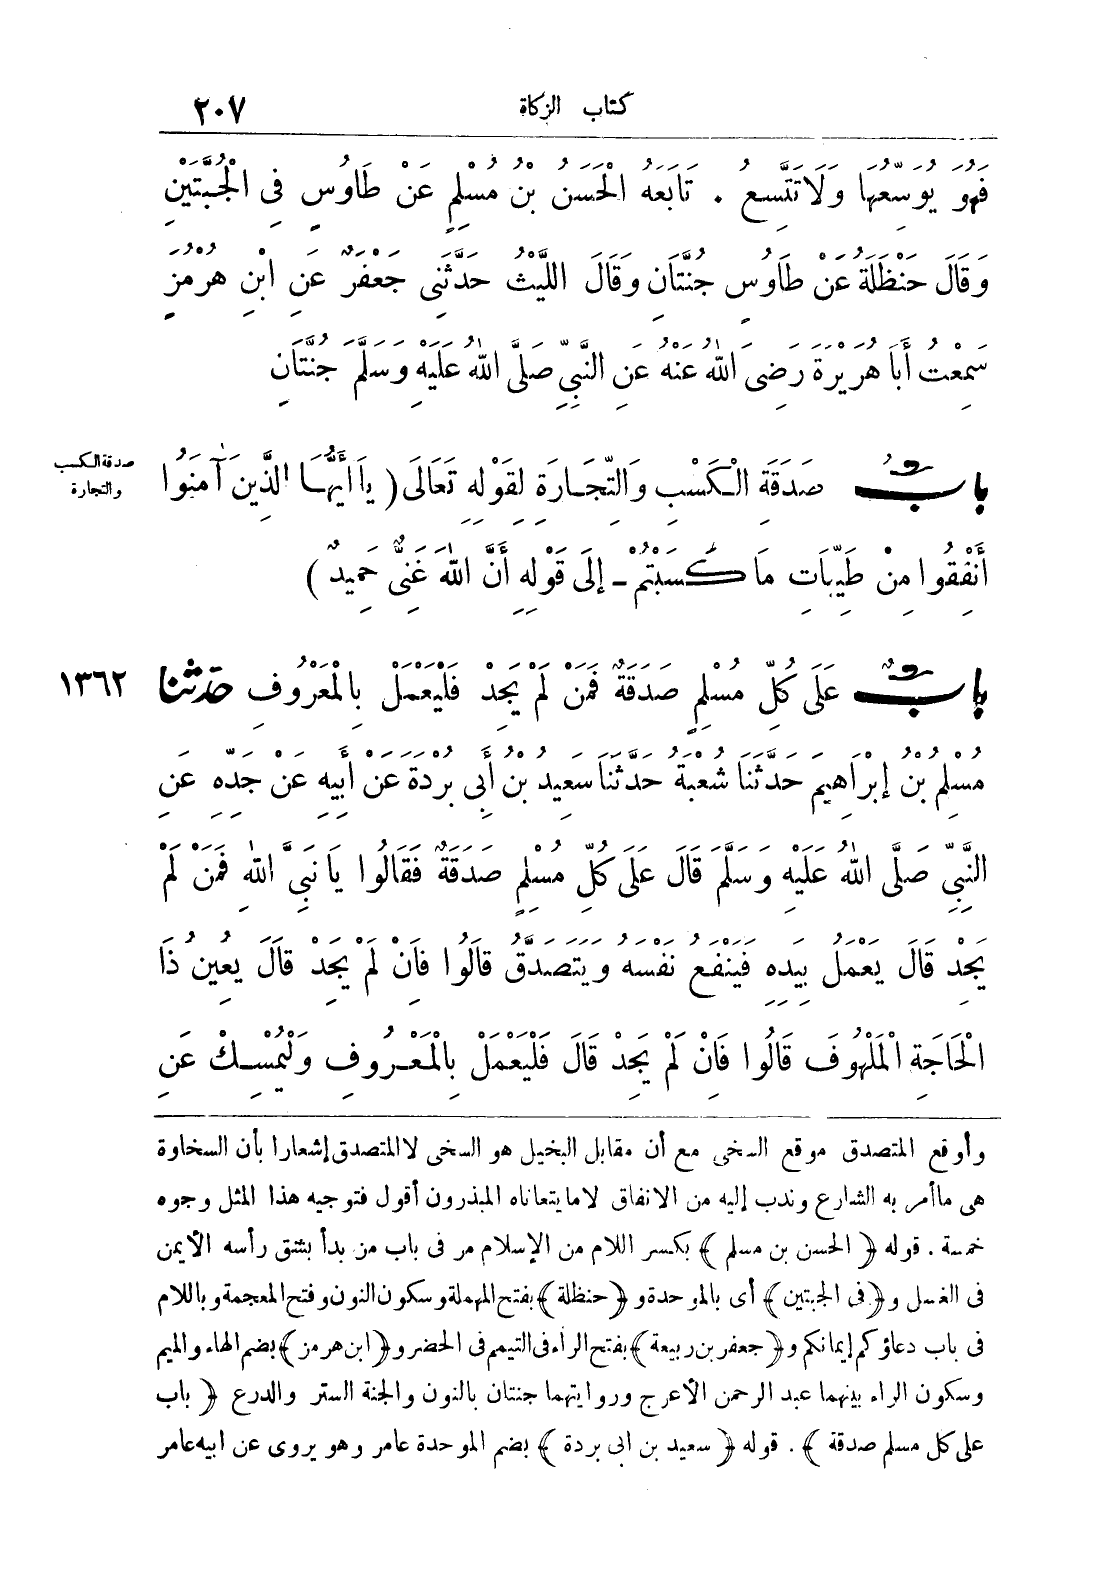 كتاب الزكاة ٢٠٧
فَهُوَ يُوَسِّعُهَا وَلَا تَتَّسِعُ . تَابَعَهُ الْحَسَنُ بْنُ مُسْلِمٍ عَنْ طَاوُسٍ فِى الْجُبَّتَيْنِ
وَقَالَ حَنْظَلَةُ عَنْ طَاوُسٍ جُنَّتَانِ وَقَالَ اللَّيْثُ حَدَّثَنِى جَعْفَرٌ عَنِ ابْنِ هُرْمُزَ
سَمِعْتُ أَبَا هُرَيْرَةَ رَضِىَ اللهُ عَنْهُ عَنِ النَّبِىِّ صَلَّى اللهُ عَلَيْهِ وَسَلَّمَ جُنَّتَانِ
صدقة الكسب
والتجارة
بابُ صَدَقَةِ الْكَسْبِ وَالتِّجَارَةِ لِقَوْلِهِ تَعَالَى ( يَا أَيُّهَا الَّذِينَ آمَنُوا
أَنْفِقُوا مِنْ طَيِّبَاتِ مَا كَسَبْتُمْ ـ إِلَى قَوْلِهِ أَنَّ اللهَ غَنِىٌّ حَمِيدٌ )
بابٌ عَلَى كُلِّ مُسْلِمٍ صَدَقَةٌ فَمَنْ لَمْ يَجِدْ فَلْيَعْمَلْ بِالْمَعْرُوفِ حَدَّثَنَا ١٣٦٢
مُسْلِمُ بْنُ إِبْرَاهِيمَ حَدَّثَنَا شُعْبَةُ حَدَّثَنَا سَعِيدُ بْنُ أَبِى بُرْدَةَ عَنْ أَبِيهِ عَنْ جَدِّهِ عَنِ
النَّبِىِّ صَلَّى اللهُ عَلَيْهِ وَسَلَّمَ قَالَ عَلَى كُلِّ مُسْلِمٍ صَدَقَةٌ فَقَالُوا يَا نَبِىَّ اللهِ فَمَنْ لَمْ
يَجِدْ قَالَ يَعْمَلُ بِيَدِهِ فَيَنْفَعُ نَفْسَهُ وَيَتَصَدَّقُ قَالُوا فَانْ لَمْ يَجِدْ قَالَ يُعِينُ ذَا
الْحَاجَةِ الْمَلْهُوفَ قَالُوا فَانْ لَمْ يَجِدْ قَالَ فَلْيَعْمَلْ بِالْمَعْرُوفِ وَلْيُمْسِكْ عَنِ
وأوقع المتصدق موقع السخى مع أن مقابل البخيل هو السخى لا المتصدق إشعارا بأن السخاوة
هى ما أمر به الشارع وندب إليه من الانفاق لا ما يتعاناه المبذرون أقول فتوجيه هذا المثل وجوه
خمسة . قوله ﴿ الحسن بن مسلم ﴾ بكسر اللام من الإسلام مر فى باب من بدأ بشق رأسه الأيمن
فى الغسل و ﴿ فى الجبتين ﴾ أى بالموحدة و ﴿ حنظلة ﴾ بفتح المهملة وسكون النون وفتح المعجمة وباللام
فى باب دعاؤكم إيمانكم و ﴿ جعفر بن ربيعة ﴾ بفتح الراء فى التيمم فى الحضر و ﴿ ابن هرمز ﴾ بضم الهاء والميم
وسكون الراء بينهما عبد الرحمن الأعرج وروايتهما جنتان بالنون والجنة الستر والدرع ﴿ باب
على كل مسلم صدقة ﴾ . قوله ﴿ سعيد بن ابى بردة ﴾ بضم الموحدة عامر وهو يروى عن ابيه عامر